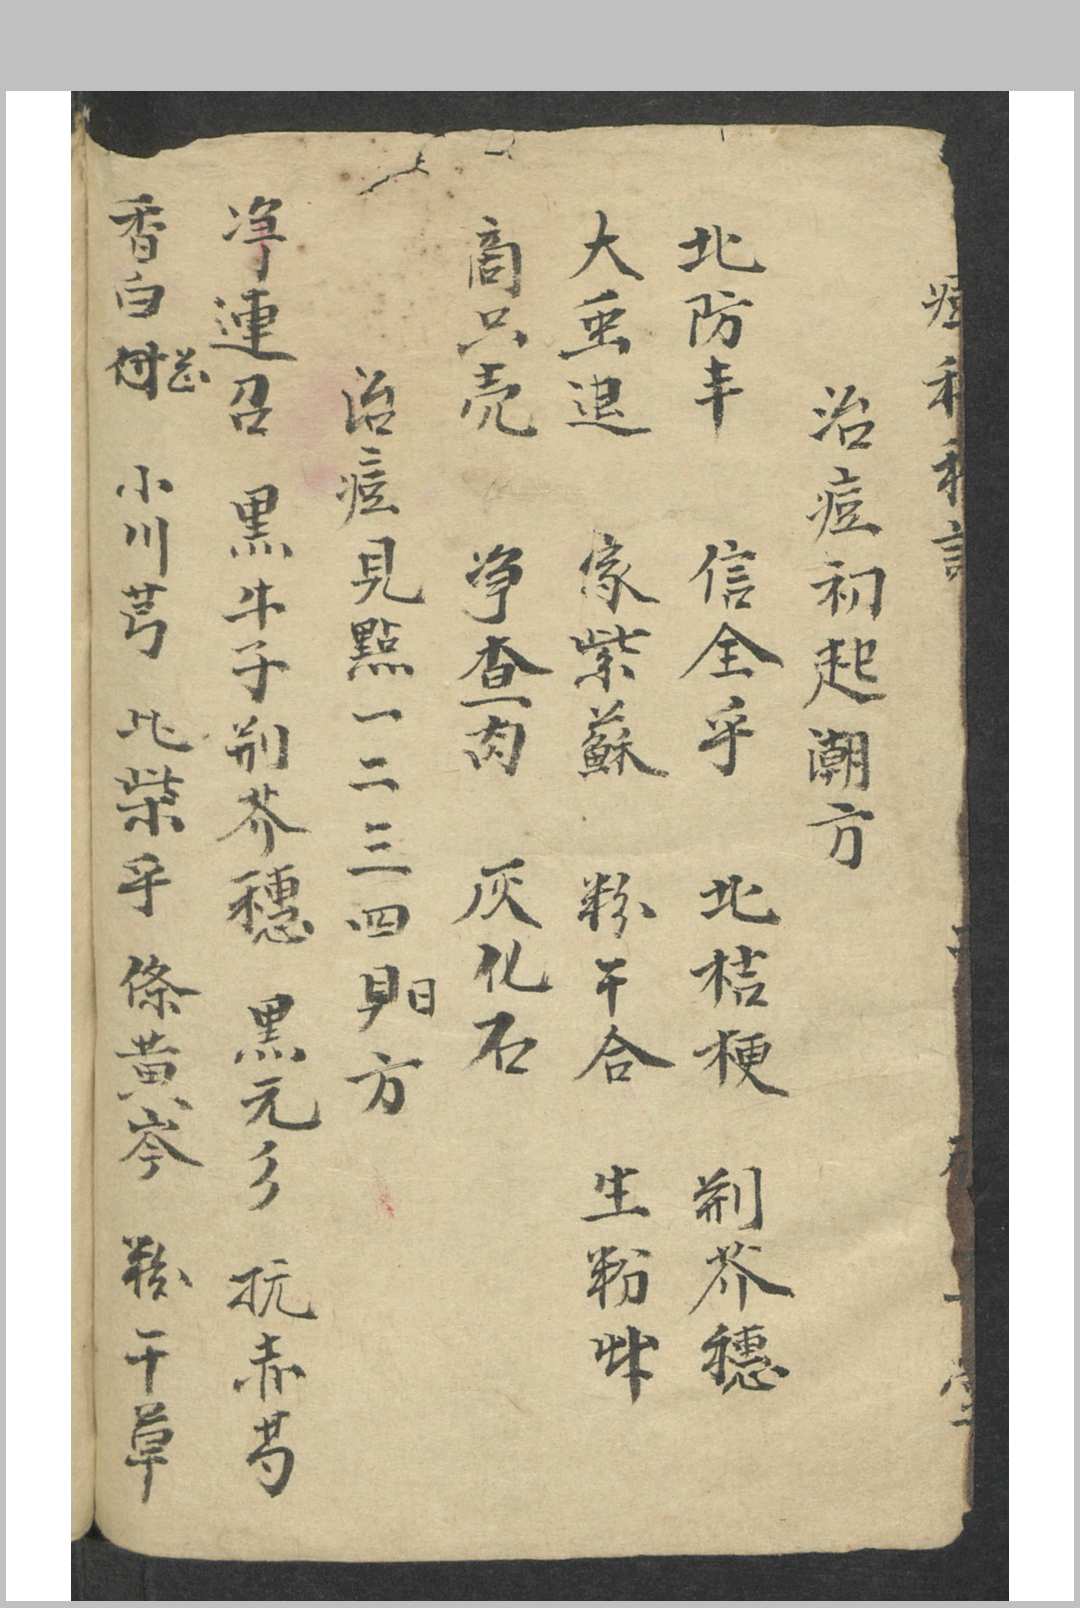 治痘初起潮方
北防丰 信全乎 北桔梗 荆芥穗
大重退 家紫蘇 粉干合 生粉
商只壳 净查肉 灰化石
治痘見點一二三四日方
净連召 黑牛子 荆芥穗 黑元 抗赤芍
香白芷 小川芎 北柴乎 條黄岑 粉干草